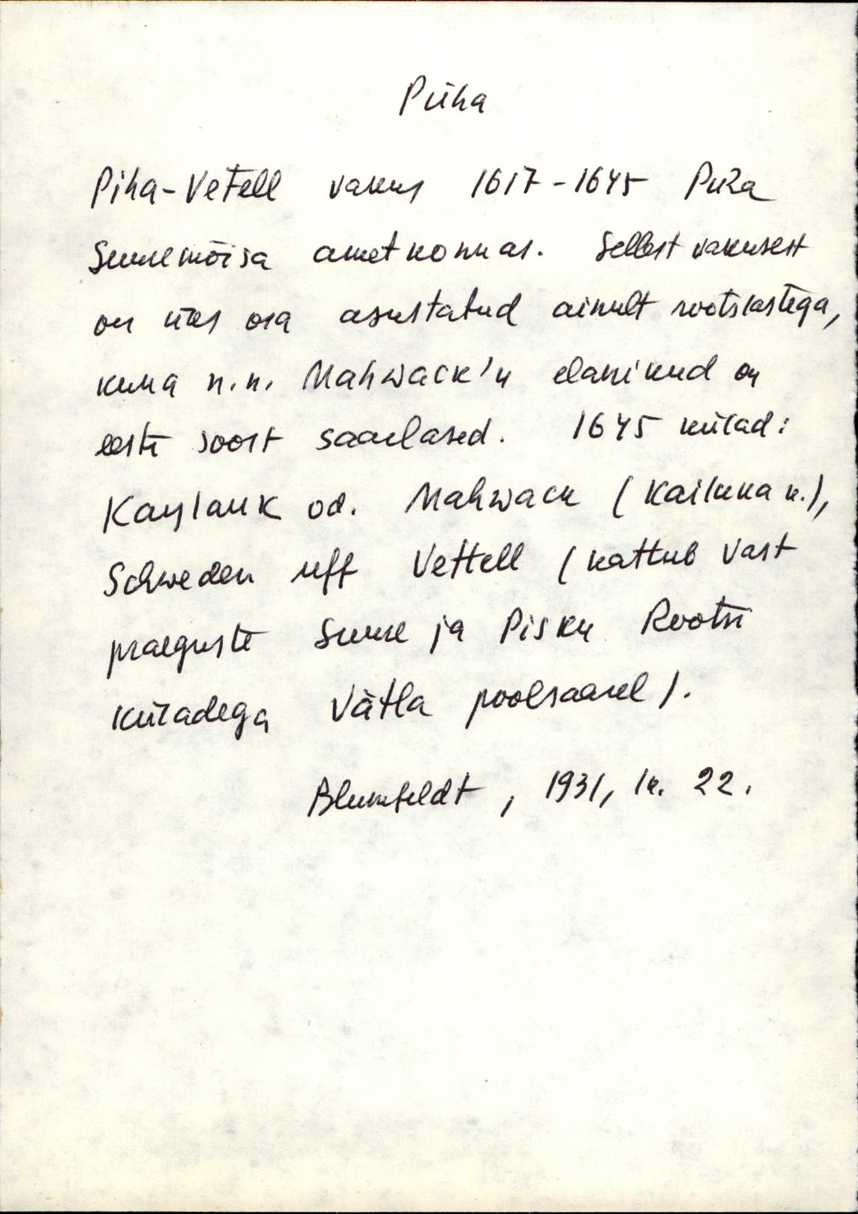 Püha
Piha-Vetell vakus 1617-1645 Püha
Suuremõisa ametkonnas. Sellest vakusest
on üks osa asustatud ainult rootslastega,
kuna n.n. Mahwack'u elanikud on
eesti soost saarlased. 1645 külad:
Kaylauk od. Mahwack (Kailuka k.),
Schweden uff Vettell (kattub vast
praeguste Suure ja Pisku Rootsi
küladega Vätla poolsaarel).
Blumfeldt, 1931, lk. 22.